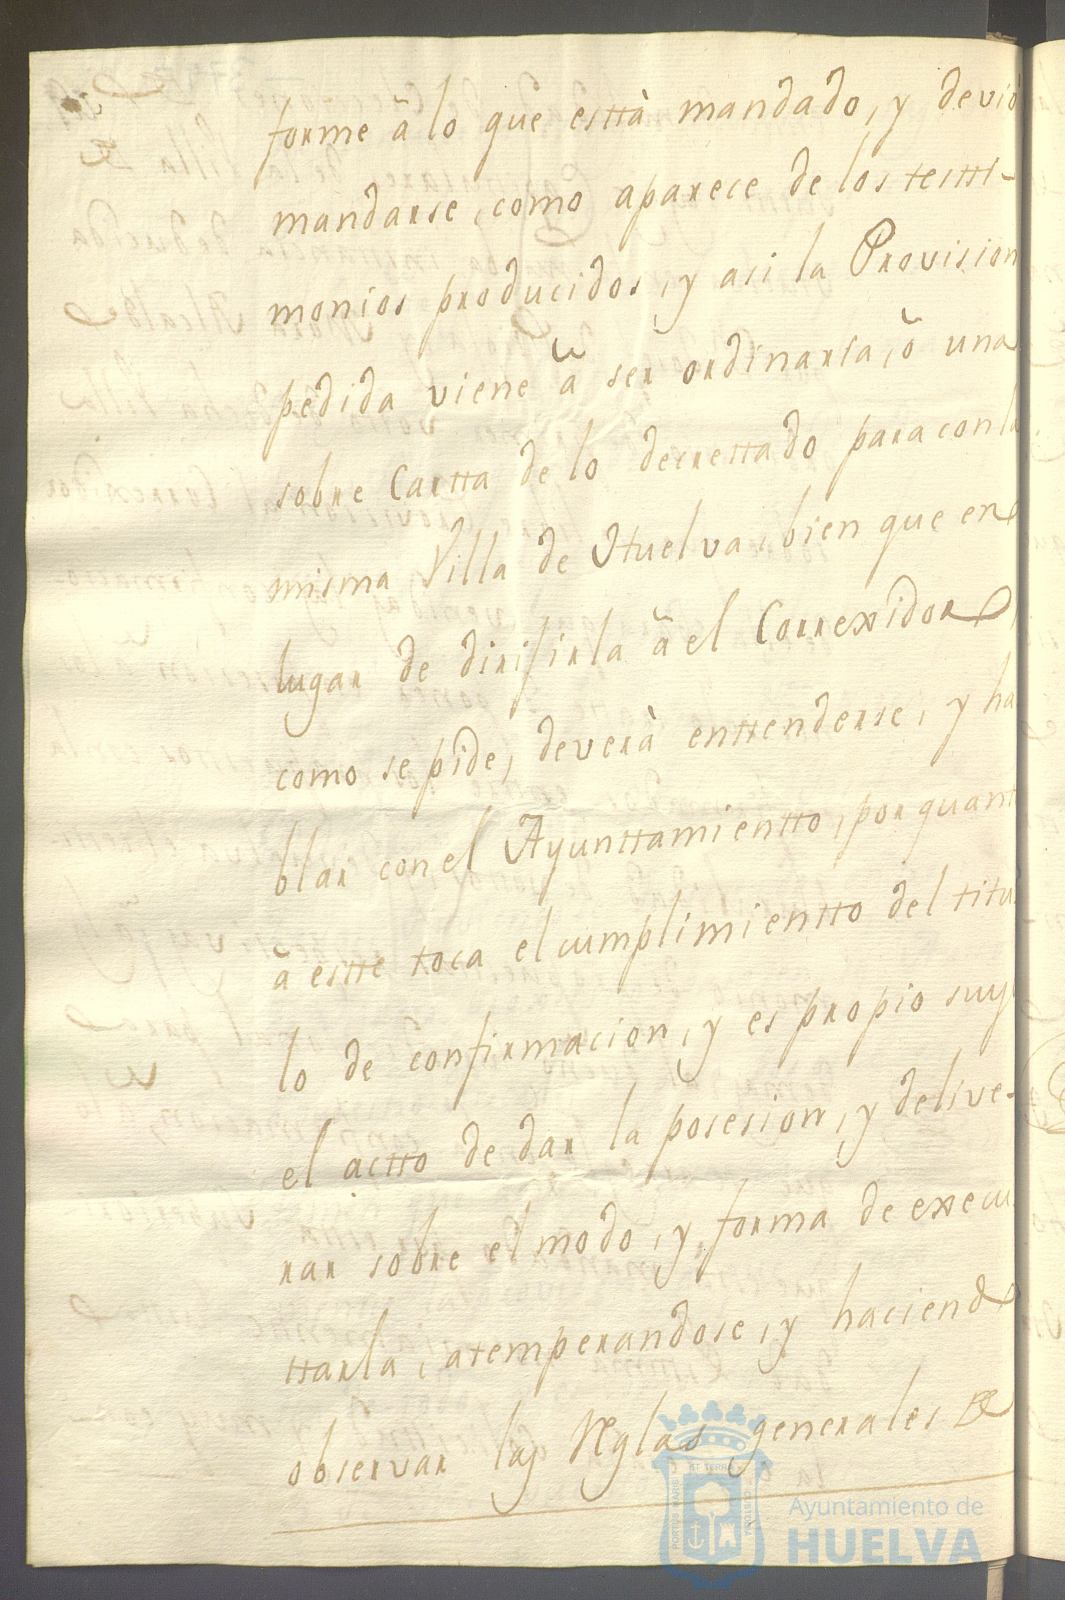 forme â lo que esttà mandado, y devió
mandarse, como aparece de los testti-
monios producidos, y asi la Provision
pedida viene â ser ordinaria, ô una
sobre Cartta de lo decrettado para con la
misma Villa de Huelva, bien que en
lugar de dirijirla â el Correxidor,
como se pide, deverà enttenderse, y ha
blar con el Ayunttamientto, por quant
â estte toca el cumplimientto del titu
lo de confirmacion, y es propio suyo
el actto de dar la posesion, y delive-
rar sobre el modo, y forma de execu
ttarla, atemperandose, y haciend
observar las Reglas generales de
Ayuntamiento de
HUELVA
PORTUS MARIS ET TERRAE CUSTODIA